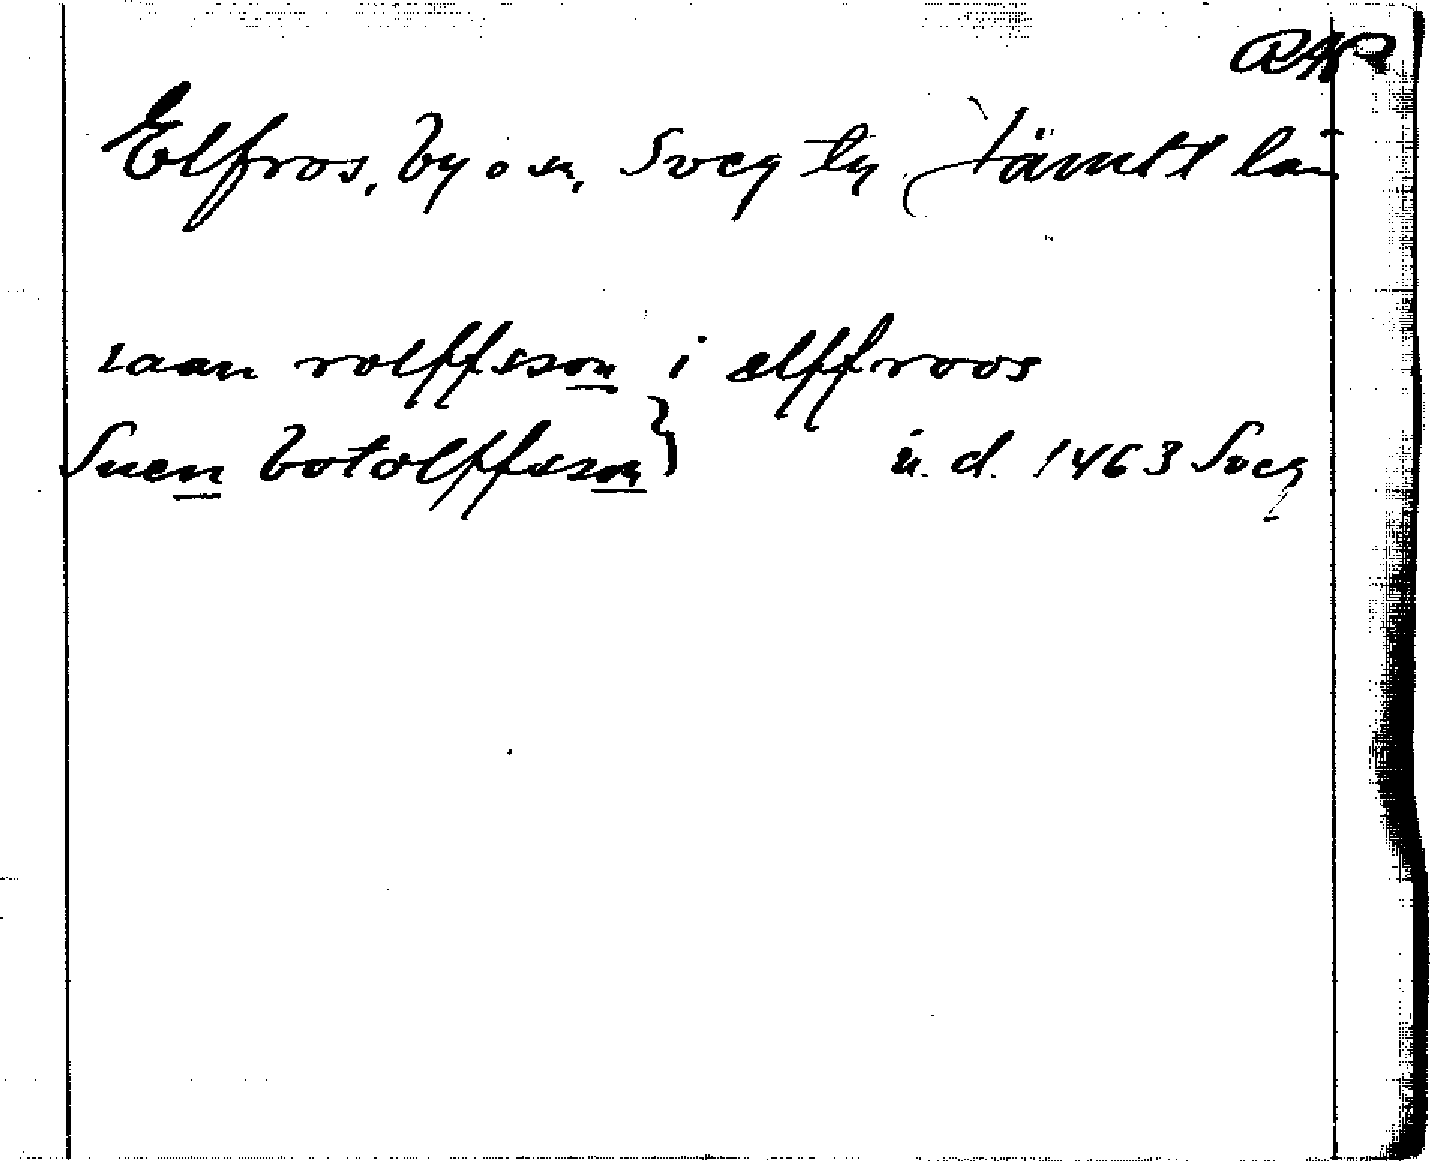 RAP
Elfros, by o sn, Sveg tg Jämtl län
raan rolffsson i elffroos
Suen botolffsson } u. d. 1463 Sveg